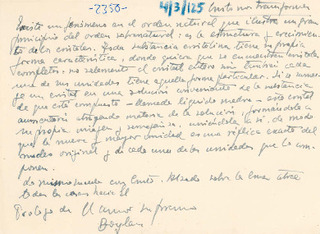 -2350- 4/3/125 Cristo nos transforma
Existe un fenómeno en el orden natural que ilustra un gran
principio del orden sobrenatural: es la estructura y crecimien-
to de los cristales. Toda substancia cristalina tiene su propia
forma característica, donde quiera que se encuentren cristales
completos; no solamente el cristal entero sino también cada
una de sus unidades tiene aquella forma particular. Si se sumer-
ge un cristal en una solución conveniente de la substancia
de que está compuesto - llamada líquido madre - este cristal
aumentará atrayendo materia de la solución, formándola a
su propia imagen y semejanza, uniéndola a sí, de modo
que la nueva y mayor unidad es una réplica exacta del
modelo original y de cada una de las unidades que la com-
ponen.
Lo mismo sucede con Cristo. 
todas las cosas hacia él
Prólogo de El Amor Supremo
Boylan